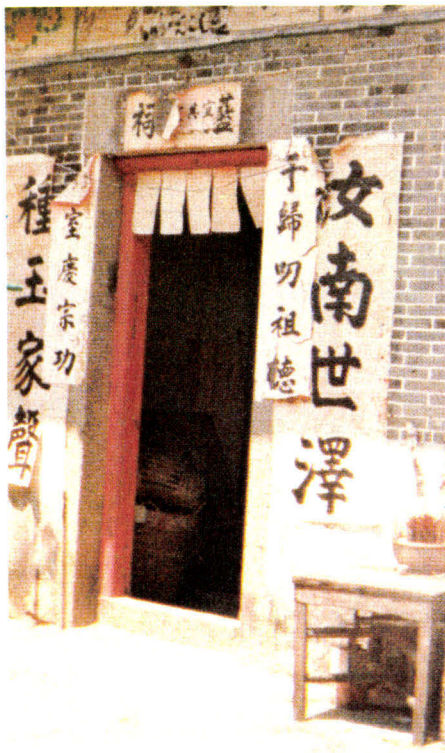 藍宜其祠
汝南世澤
于歸叨祖德
室慶宗功
種玉家聲